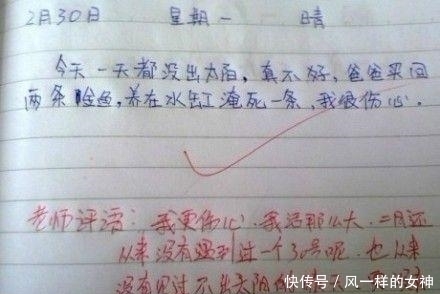 2月30日 星期一 晴
今天一天都没出太阳，真不好，爸爸买回
两条金鱼，养在水缸淹死一条，我很伤心．
老师评语：我更伤心．我活那么大．二月还
从来没有遇到过一个30号呢．也从来
没有见过不出太阳的
快传号／风一样的女神